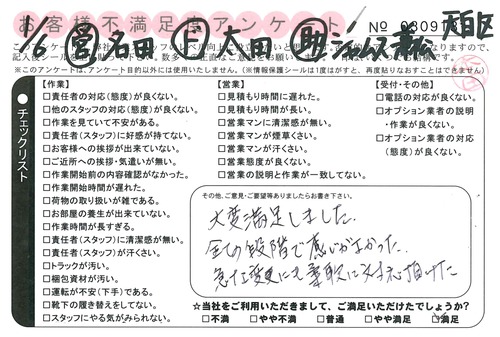 お客様不満足度アンケート
No 080918
1/6 営 名田 ド 太田 助 天白区
記入後シール
※このアンケートは、アンケート目的以外には使用いたしません。(※情報保護シールは1度はがすと、再度貼りなおすことはできません)
チェックリスト
【作業】
□責任者の対応(態度)が良くない。
□他のスタッフの対応(態度)が良くない。
□作業を見ていて不安がある。
□責任者(スタッフ)に好感が持てない。
□お客様への挨拶が出来ていない。
□ご近所への挨拶・気遣いが無い。
□作業開始前の内容確認がなかった。
□作業開始時間が遅れた。
□荷物の取り扱いが雑である。
□お部屋の養生が出来ていない。
□作業時間が長すぎる。
□責任者(スタッフ)に清潔感が無い。
□責任者(スタッフ)が汗くさい。
□トラックが汚い。
□梱包資材が汚い。
□運転が不安(下手)である。
□靴下の履き替えをしてない。
□スタッフにやる気がみられない。
【営業】
□見積もり時間に遅れた。
□見積もり時間が長い。
□営業マンに清潔感が無い。
□営業マンが煙草くさい。
□営業マンが汗くさい。
□営業態度が良くない。
□営業の説明と作業が一致してない。
【受付・その他】
□電話の対応が良くない。
□オプション業者の説明
・作業が良くない。
□オプション業者の対応
(態度)が良くない。
その他、ご意見・ご要望等ありましたらお書き下さい。
大変満足しました。
全ての段階で感じがよかった。
急な変更にも柔軟に対応頂けた
☆当社をご利用いただきまして、ご満足いただけたでしょうか?
□不満 □やや不満 □普通 □やや満足 □満足